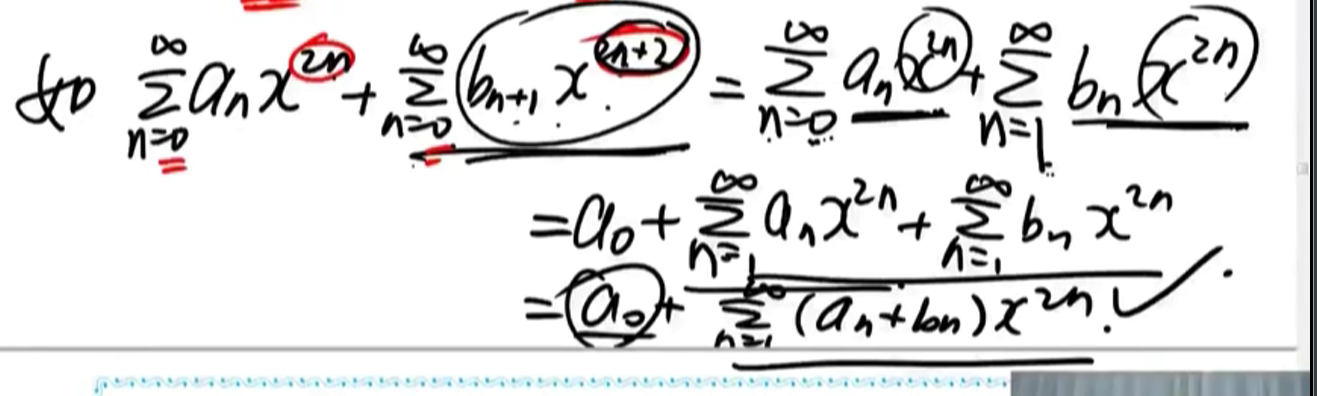 如 ∑_{n=0}^{∞} a_n x^{2n} + ∑_{n=0}^{∞} b_{n+1} x^{2n+2} = ∑_{n=0}^{∞} a_n x^{2n} + ∑_{n=1}^{∞} b_n x^{2n}
= a_0 + ∑_{n=1}^{∞} a_n x^{2n} + ∑_{n=1}^{∞} b_n x^{2n}
= a_0 + ∑_{n=1}^{∞} (a_n + b_n) x^{2n}.